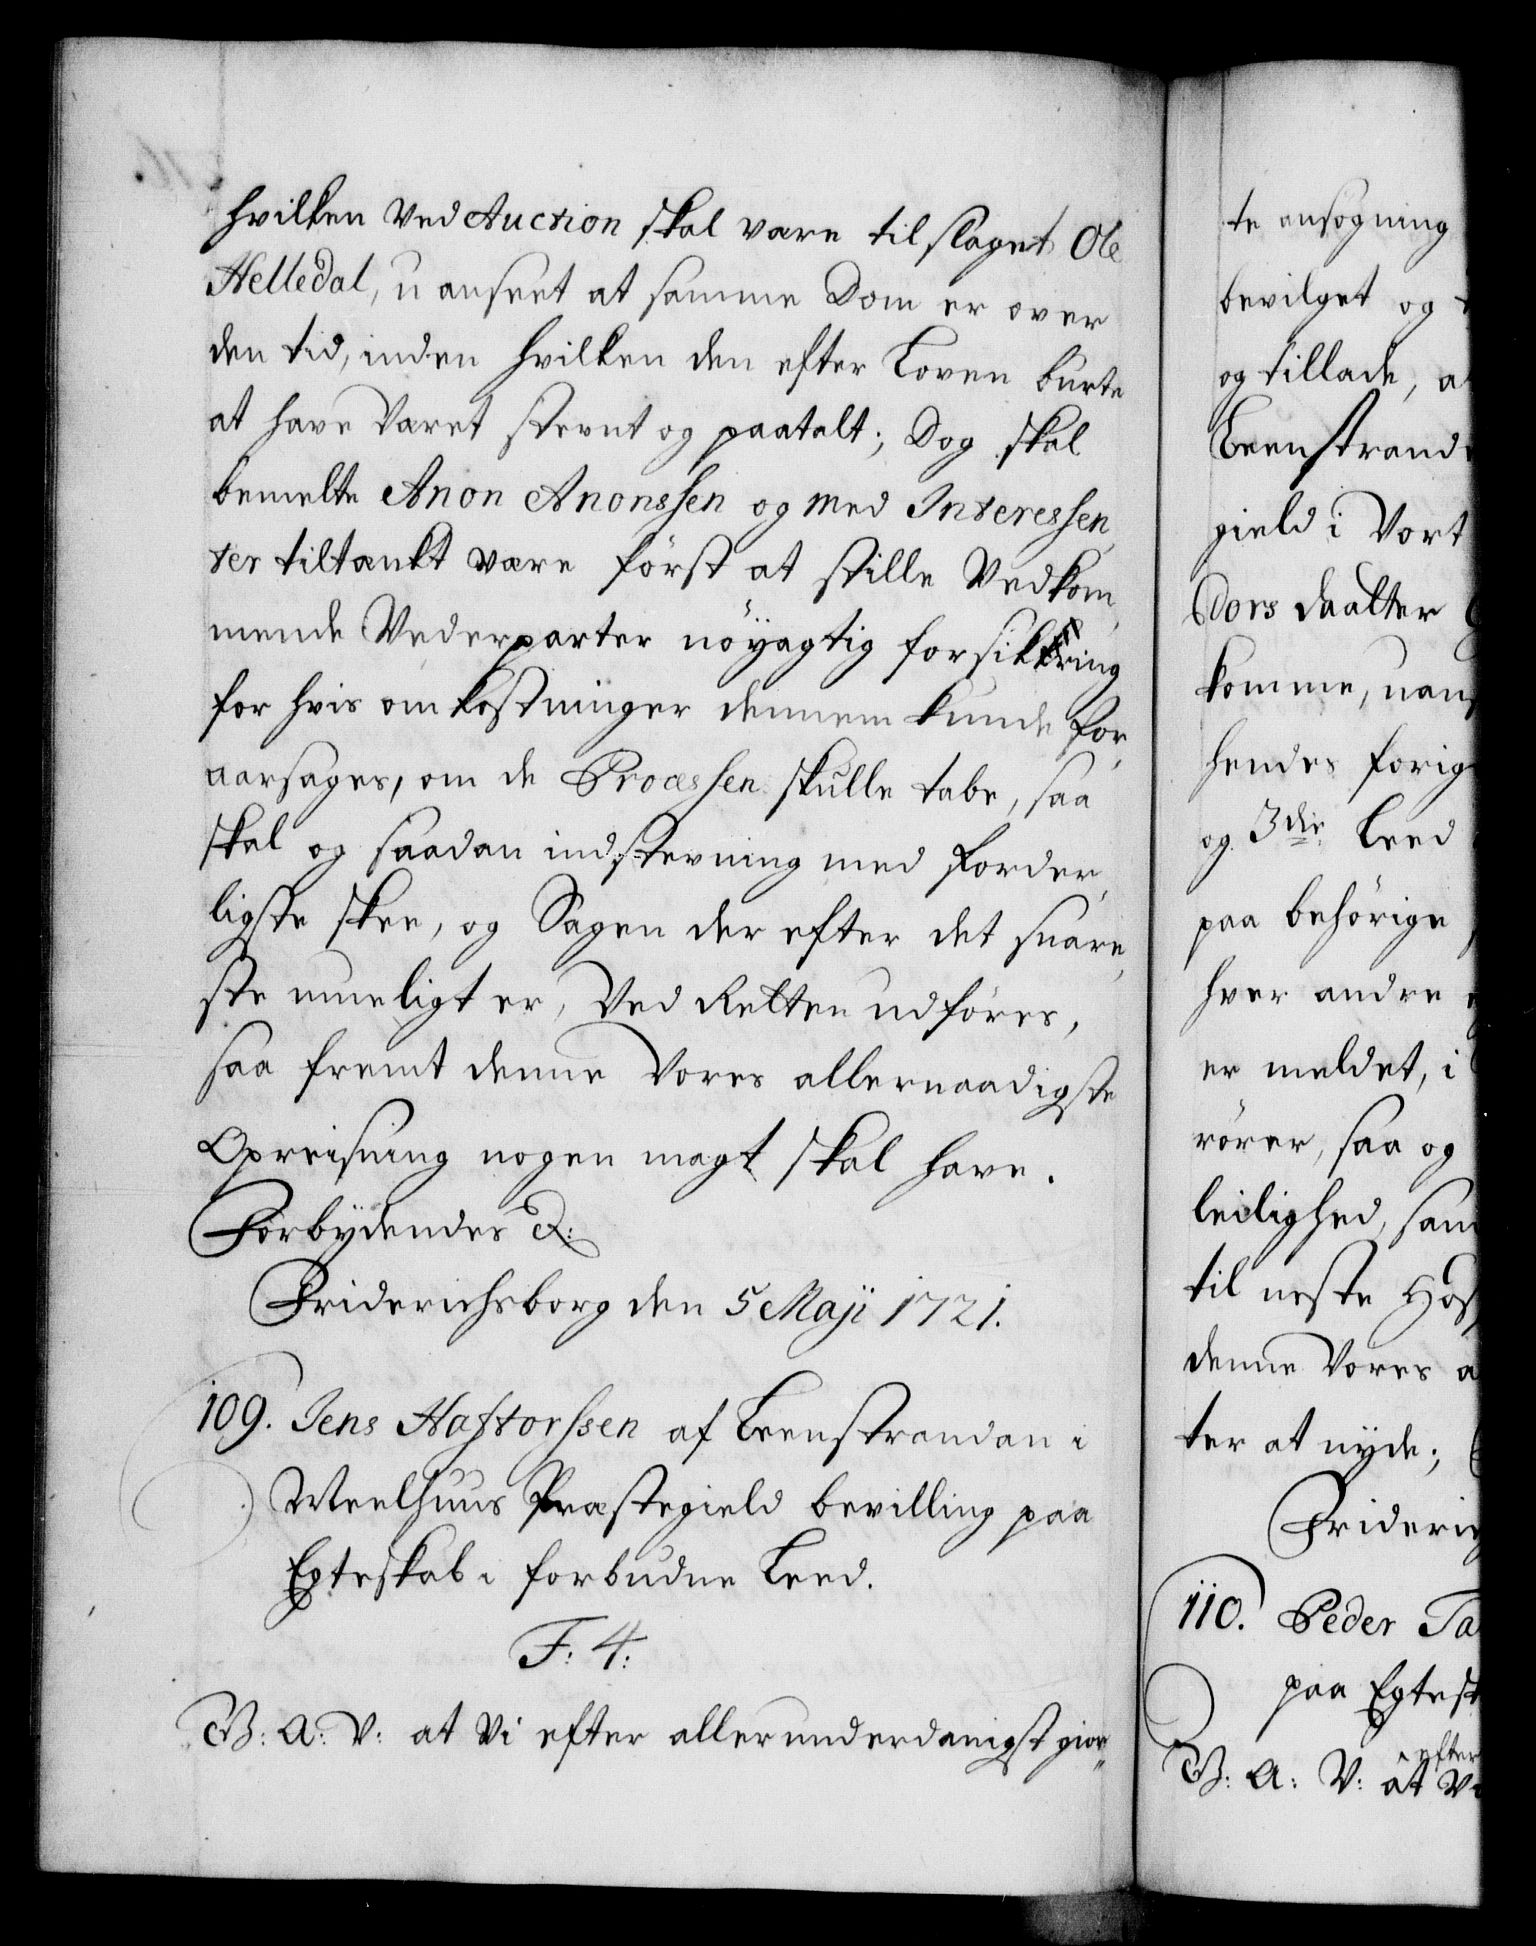 hvilken ved Auction skal være tilslaget Ole
Helledal, u anseet at samme Dom er over
den tid, inden hvilken den efter Loven burte
at have været stevnt og paatalt; Dog skal
bemelte Anon Anonssen og med Interessen,
ter tiltænkt være först at stille Vedkom,
mende Vederparter nöyagtig forsikkring
for hvis omkostninger dennem kunde for,
aarsages, om de Processen skulle tabe, saa
skal og saadan indstevning med forder,
ligste skee, og Sagen der efter det snare,
ste mueligt er, Ved Retten udföres,
saa fremt denne Vores allernaadigste
Opreisning nogen magt skal have.
Forbydendes &:
Friderichsborg den 5 Maji 1721.
109. Jens Haftorssen af Leenstrandan i
Meelhuus Præstegield bevilling paa
Egteskab i forbudne Leed.
F: 4:
G: A: V: at Vi efter allerunderdanigst gior„
te ansögning
bevilget og
og tillade, at
Leenstrand
gield i Vort
Dors daatter
komme, uans
hendes forig
og 3die Leed
paa behörige
hver andre
er meldet, i
rörer, saa og
leilighed, sam
til neste Hos
denne Vores a
ter at nyde;
Friderich
110. Peder Ta
paa Egtesk
efter
G: A: V: at Vi